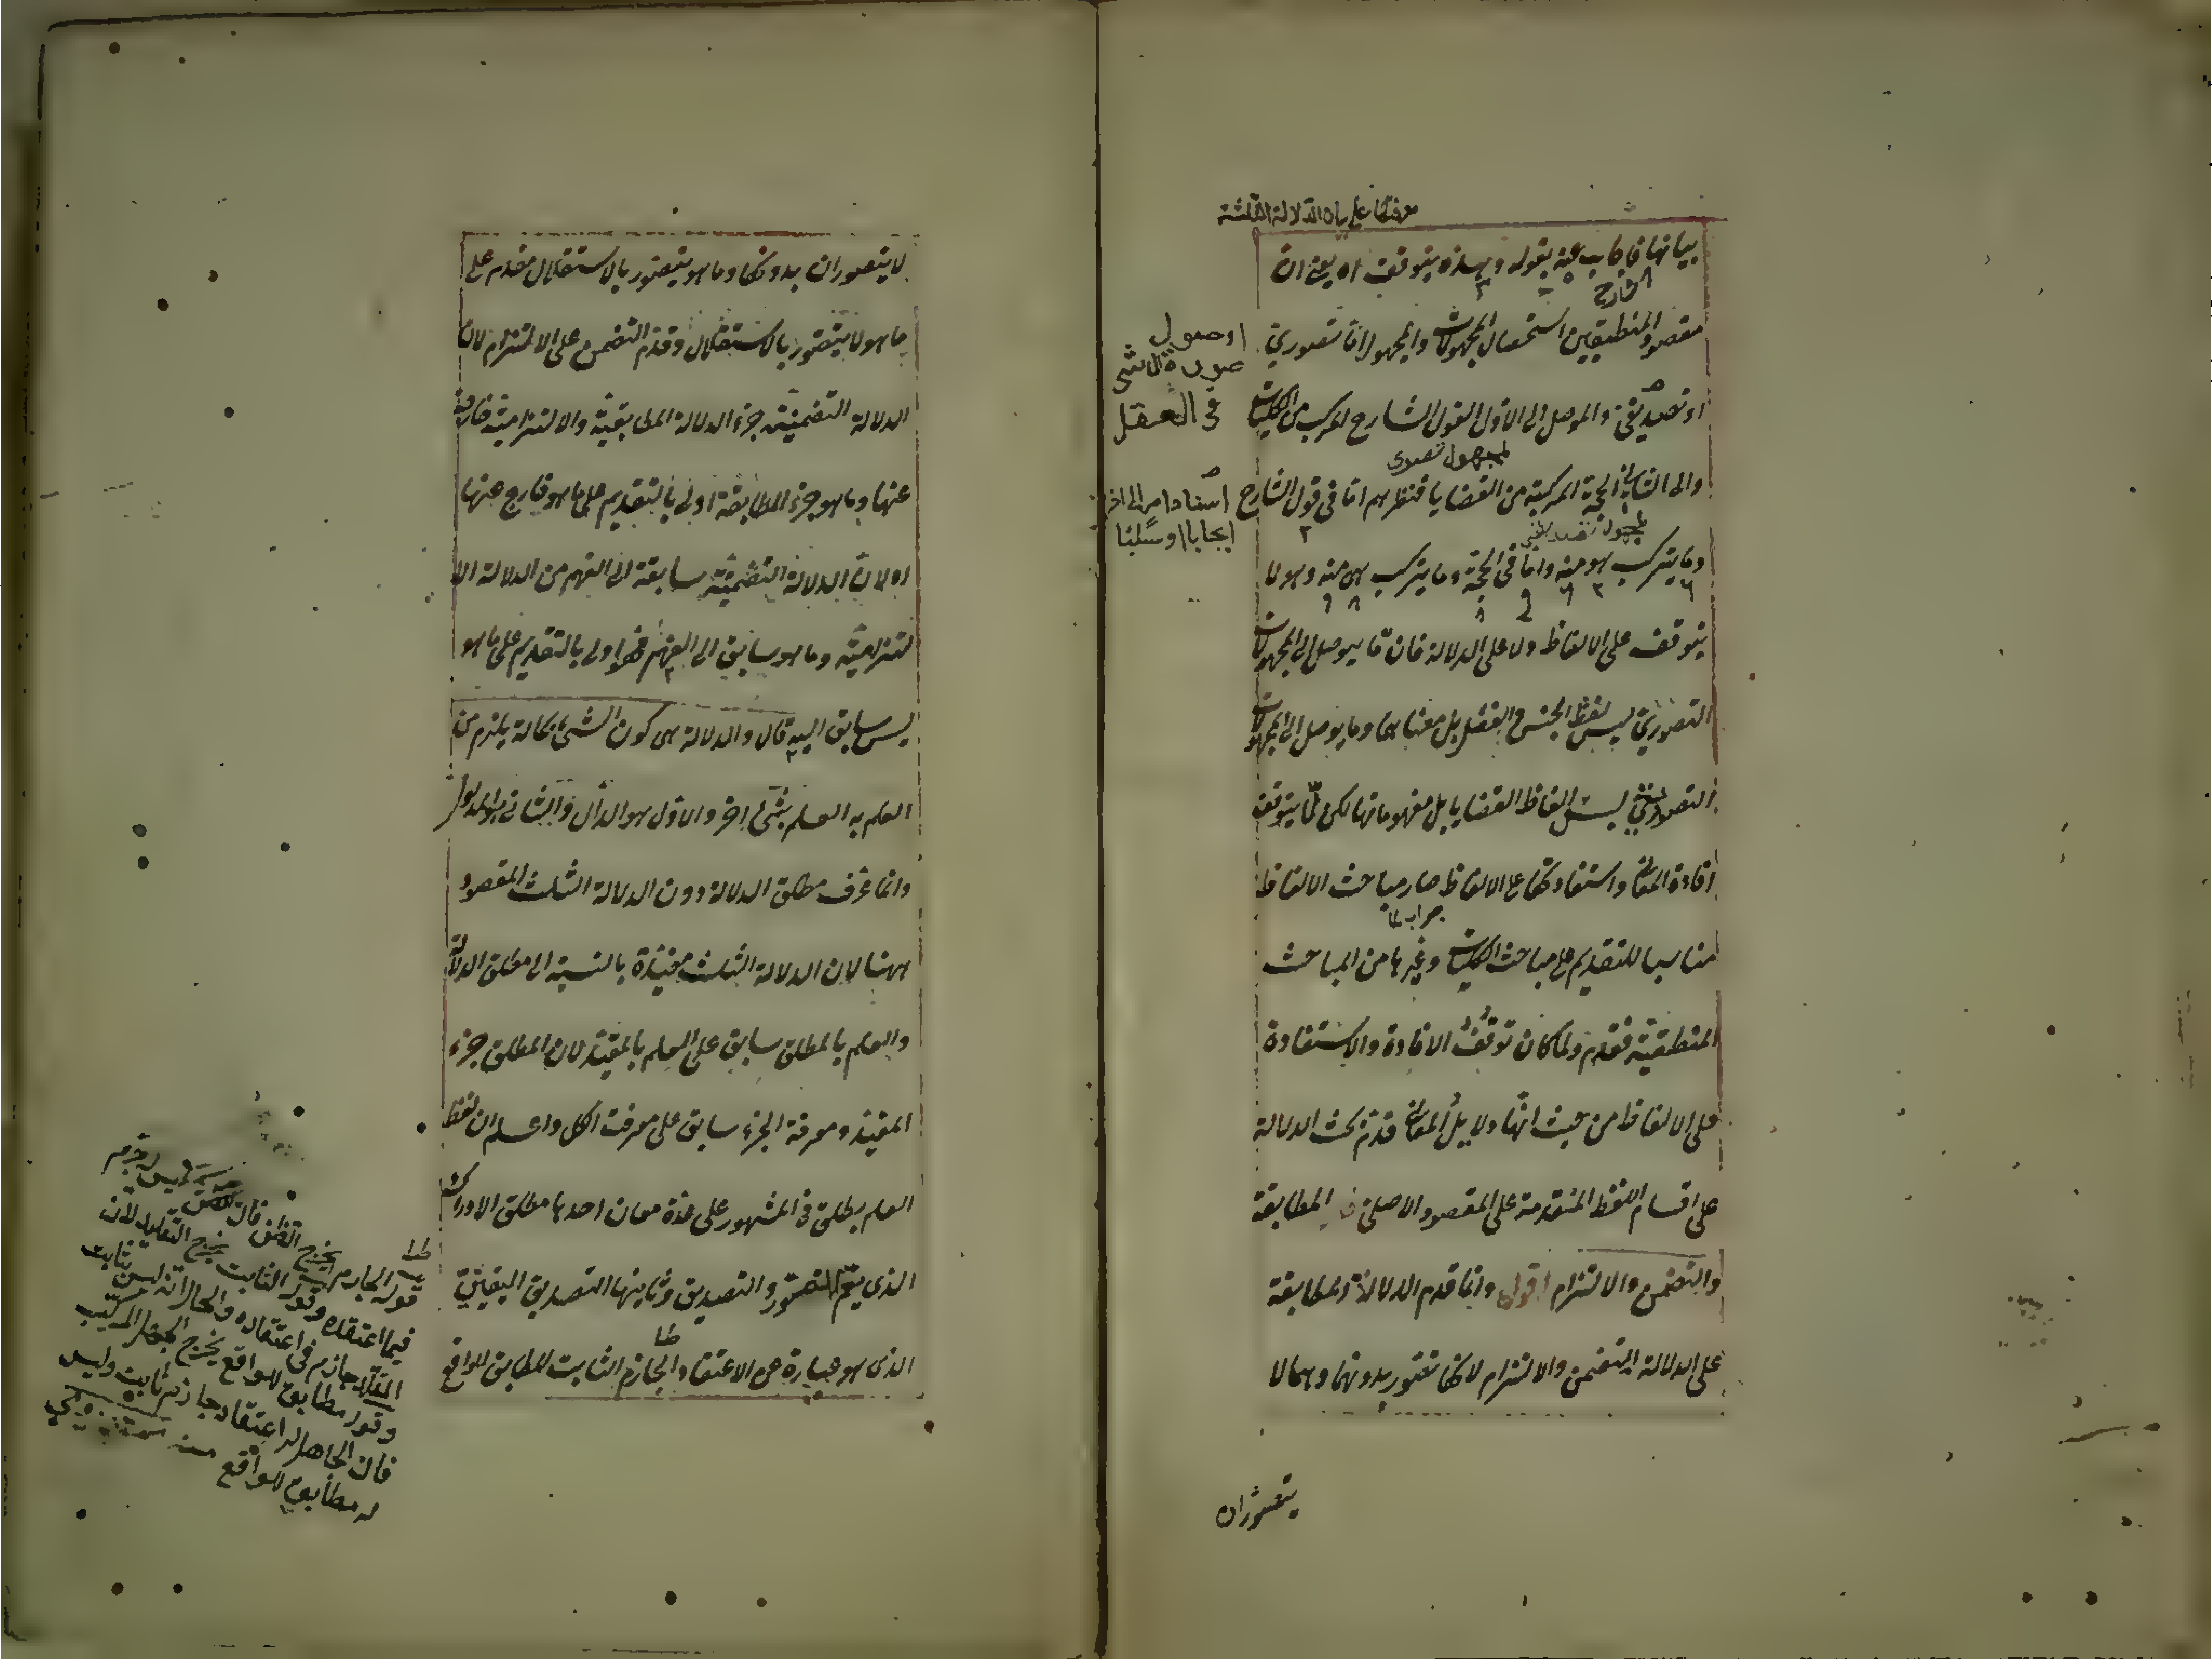 معرفتها على بيان الدلالة الثلثة
بيانها فاجاب عنه بقوله وبهذه يتوقف اه يعني ان
الشارح
مقصود المنطقيين استحصال المجهولات والمجهول اما تصوري
او تصديقي والموصل الى الاول القول الشارح المركب من الكليات
لمجهول تصوري
والى الثاني الحجة المركبة من القضايا فنظرهم اما في قول الشارح
لمجهول تصديقي
وما يتركب هو منه واما في الحجة وما يتركب هى منه وهو لا
يتوقف على الالفاظ ولا على الدلالة فان ما يوصل الى المجهولات
التصوري ليس لفظ الجنس والفصل بل معناهما وما يوصل الى المجهولات
التصديقي ليس الفاظ القضايا بل مفهوماتها لكن لما يتوقف
افادة المعاني واستفادتها على الالفاظ صار مباحث الالفاظ
جواب لما
مناسبا للتقديم على مباحث الكليات وغيرها من المباحث
المنطقية فقدم ولما كان توقف الافادة والاستفادة
على الالفاظ من حيث انها دلايل المعاني قدم بحث الدلالة
على اقسام اللفظ المتقدمة على المقصود الاصلي المطابقة
والتضمن والالتزام اقول وانما قدم الدلالة المطابقة
على الدلالة التضمن والالتزام لانها تتصور بدونهما وهما لا
يتصوران
او حصول
صورة الشئ
في العقل
اسناد امر الى اخر
ايجابا او سلبا
لا يتصوران بدونها وما هو يتصور بالاستقلال مقدم على
ما هو لا يتصور بالاستقلال وقدم التضمن على الالتزام لان
الدلالة التضمنية جزء الدلالة المطابقية والالتزامية خارجة
عنها وما هو جزء المطابقة اولى بالتقديم على ما هو خارج عنها
اولان الدلالة التضمنية سابقة الى الفهم من الدلالة الا
لتزامية وما هو سابق الى الفهم فهو اولى بالتقديم على ما هو
ليس سابق اليه قال والدلالة هى كون الشئ بحالة يلزم من
العلم به العلم بشئ اخر والاول هو الدال والثاني هو المدلول
وانما عرف مطلق الدلالة دون الدلالة الثلث المقصود
ههنا لان الدلالة الثلث مقيدة بالنسبة الى مطلق الدلالة
والعلم بالمطلق سابق على العلم بالمقيد لان المطلق جزء
المقيد ومعرفة الجزء سابق على معرفت الكل واعلم ان لفظ
العلم يطلق في المشهور على عدة معان احدها مطلق الادراك
الذي يعم التصور والتصديق وثانيها التصديق اليقيني
الذي هو عبارة عن الاعتقاد الجازم الثابت المطابق للواقع
قوله الجازم يخرج الظن فان ليس له جزم
فيما اعتقده وقوله الثابت يخرج التقليد لان
المقلد جازم في اعتقاده والحال انه ليس بثابت
وقوله مطابق للواقع يخرج الجهل المركب
فان الجاهل له اعتقاد جازم ثابت وليس
له مطابق للواقع